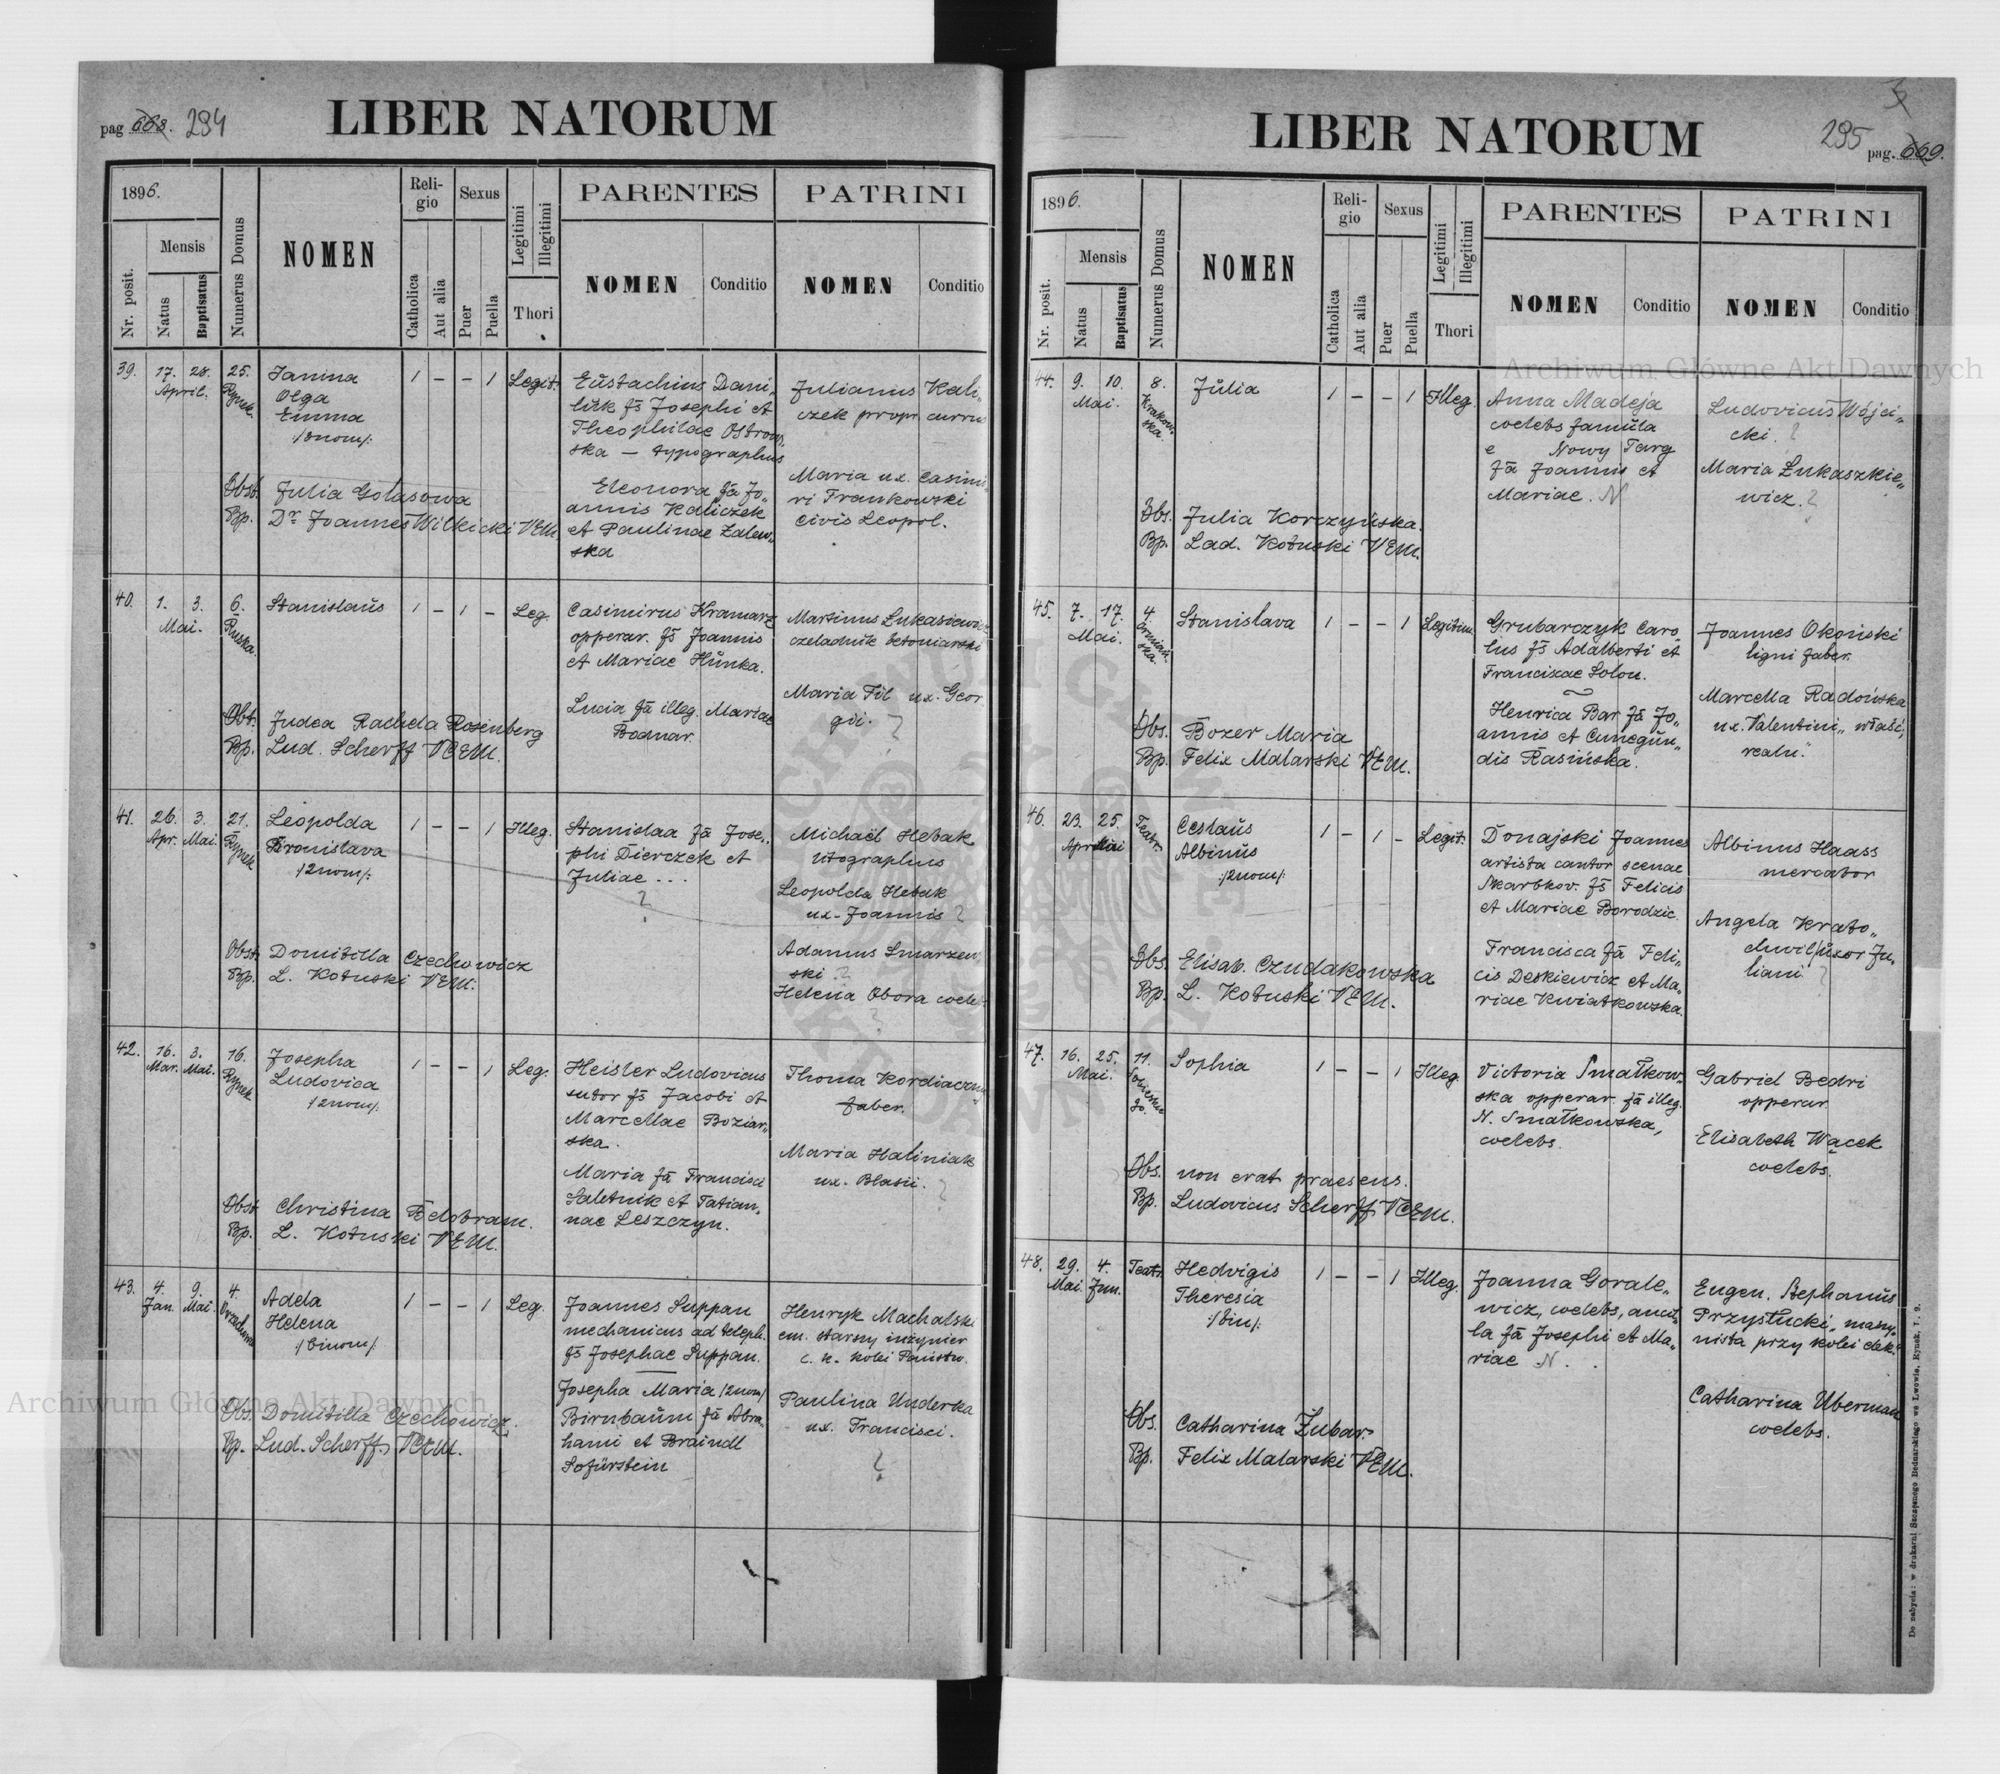 pag. 668. 294
LIBER NATORUM
1896.
Nr. posit.
Mensis
Natus
Baptisatus
Numerus Domus
NOMEN
Religio
Catholica
Aut alia
Sexus
Puer
Puella
Legitimi
Illegitimi
Thori
PARENTES
NOMEN
Conditio
PATRINI
NOMEN
Conditio
39. 17. 28. April. 25. Rynek.
Janina
Olga
Emma
/3nom/:
1 - - 1 Legit.
Eustachius Dani„
luk fs Josephi et
Theophilae Ostrow„
ska — typographus
Eleonora fa Jo„
annis Kaliczek
et Paulinae Zalew„
ska
Julianus Kali„
czek propr. currus
Maria ux. Casimi„
ri Frankowski
civis Leopol.
Obst. Julia Golasowa
Bp. Dr Joannes Witkicki VEM.
40. 1. 3. Mai. 6. Ruska.
Stanislaus
1 - 1 - Leg.
Casimirus Kramarz
opperar. fs Joannis
et Mariae Hunka.
Lucia fa illeg. Mariae
Bodnar.
Martinus Łukasiewicz
czeladnik betoniarski
Maria Fil ux. Geor
gii. ?
Obt. Judea Rachela Rosenberg
Bp. Lud. Scherff VCEM.
41. 26. Apr. 3. Mai. 21. Rynek
Leopolda
Bronislava
/2nom/:
1 - - 1 Illeg.
Stanislaa fa Jose„
phi Dierczek et
Juliae ...
?
Michaël Hebak
litographus
Leopolda Hebak
ux. Joannis ?
Adamus Smarzew
ski ?
Helena Obora coelebs
?
Obst. Domitilla Czechowicz
Bp. L. Kotuski VEM.
42. 16. Mar. 3. Mai. 16. Rynek
Josepha
Ludovica
/2nom/:
1 - - 1 Leg.
Heisler Ludovicus
sutor fs Jacobi et
Marcellae Boziar„
ska.
Maria fa Francisci
Saletnik et Tatian„
nae Leszczyn.
Thoma Kordiaczny
faber.
Maria Haliniak
ux. Blasii. ?
Obst. Christina Belobram.
Bp. L. Kotuski VEM.
43. 4. Jan. 9. Mai. 4.
Adela
Helena
:/binom/:
1 - - 1 Leg.
Joannes Suppan
mechanicus ad teleph.
fs Josephae Suppan.
Josepha Maria /2nom/
Birnbaum fa Abra„
hami et Braindl
Sofürstein
Henryk Machalski
em. starszy inżynier
c. k. kolei Państw.
Paulina Underka
ux. Francisci.
?
Obs. Domitilla Czechowicz.
Bp. Lud. Scherff. VCEM.
295 pag. 669.
LIBER NATORUM
1896.
Nr. posit.
Mensis
Natus
Baptisatus
Numerus Domus
NOMEN
Religio
Catholica
Aut alia
Sexus
Puer
Puella
Legitimi
Illegitimi
Thori
PARENTES
NOMEN
Conditio
PATRINI
NOMEN
Conditio
44. 9. 10. Mai. 8. Krakow„ska
Julia
1 - - 1 Illeg.
Anna Madeja
coelebs famula
e Nowy Targ
fa Joannis et
Mariae. N
Ludovicus Wójci„
cki. ?
Maria Łukaszkie„
wicz. ?
Obs. Julia Korczyńska.
Bp. Lad. Kotuski VEM.
45. 7. 17. Mai. 4. Ormiań„ska.
Stanislava
1 - - 1 Legitim.
Grubarczyk Caro„
lus fs Adalberti et
Franciscae Solon.
Henrica Bar fa Jo„
annis et Cunegun„
dis Rasińska.
Joannes Okoński
ligni faber.
Marcella Radowska
ux. Valentini „właśc.
realn."
Obs. Bozer Maria
Bp. Felix Malarski VEM.
46. 23. Aprilis 25. Mai Teatr.
Ceslaus
Albinus
:/2nom/:
1 - 1 - Legit.
Donajski Joannes
artista cantor scenae
Skarbkov. fs Felicis
et Mariae Borodzic.
Francisca fa Feli„
cis Deskiewicz et Ma„
riae Kwiatkowska.
Albinus Haass
mercator
Angela Krato„
chwil uxor Ju„
liani ?
Obs. Elisab. Czudakowska
Bp. L. Kotuski VEM.
47. 16. 25. Mai. 11. Sobieskie„go.
Sophia
1 - - 1 Illeg.
Victoria Smałkow„
ska opperar. fa illeg.
N. Smałkowska,
coelebs.
Gabriel Bedri
opperar.
Elisabeth Wącek
coelebs.
Obs. non erat praesens.
Bp. Ludovicus Scherff VCEM.
48. 29. Mai. 4. Jun. Teatr.
Hedvigis
Theresia
:/bin/:
1 - - 1 Illeg.
Joanna Gorale„
wicz, coelebs, ancil„
la fa Josephi et Ma„
riae N.
Eugen. Stephanus
Przysłucki „maszy„
nista przy kolei elek."
Catharina Uberman
coelebs.
Obs. Catharina Żubar
Bp. Felix Malarski VEM.
Do nabycia: w drukarni Szczęsnego Bednarskiego we Lwowie, Rynek, l. 9.
Archiwum Główne Akt Dawnych
Archiwum Główne Akt Dawnych